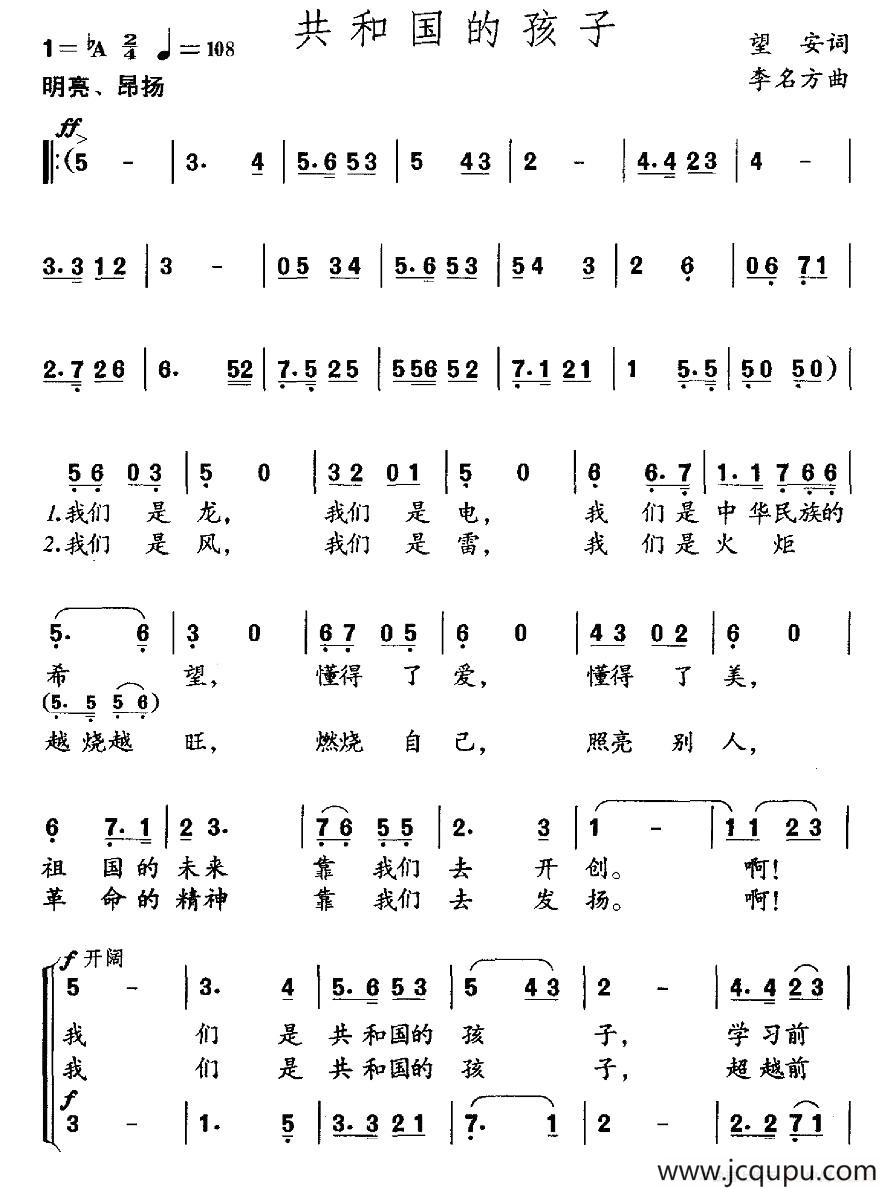 共和国的孩子
1=♭A 2/4 ♩=108 望 安词
明亮、昂扬 李名方曲
ff
‖:(5 - | 3. 4 | 5.6 53 | 5 43 | 2 - | 4.4 23 | 4 - |
3.3 12 | 3 - | 05 34 | 5.6 53 | 54 3 | 2 6 | 06 71 |
2.7 26 | 6. 52 | 7.5 25 | 556 52 | 7.1 21 | 1 5.5 | 50 50) |
56 03 | 5 0 | 32 01 | 5 0 | 6 6.7 | 1.1 7 66 |
1.我们 是 龙, 我们 是 电, 我 们是 中华民族的
2.我们 是 风, 我们 是 雷, 我 们是 火 炬
5. 6 | 3 0 | 67 05 | 6 0 | 43 02 | 6 0 |
希 望, 懂得 了 爱, 懂得 了 美,
(5. 5 5 6)
越烧越 旺, 燃烧 自 己, 照亮 别 人,
6 7.1 | 2 3. | 76 55 | 2. 3 | 1 - | 11 23 |
祖 国的 未来 靠 我们 去 开 创。 啊!
革 命的 精神 靠 我们 去 发 扬。 啊!
f 开阔
5 - | 3. 4 | 5.6 53 | 5 43 | 2 - | 4.4 23 |
我 们 是 共和国的 孩 子, 学习前
我 们 是 共和国的 孩 子, 超越前
f
3 - | 1. 5 | 3.3 21 | 7. 1 | 2 - | 2.2 71 |
www.jcqupu.com